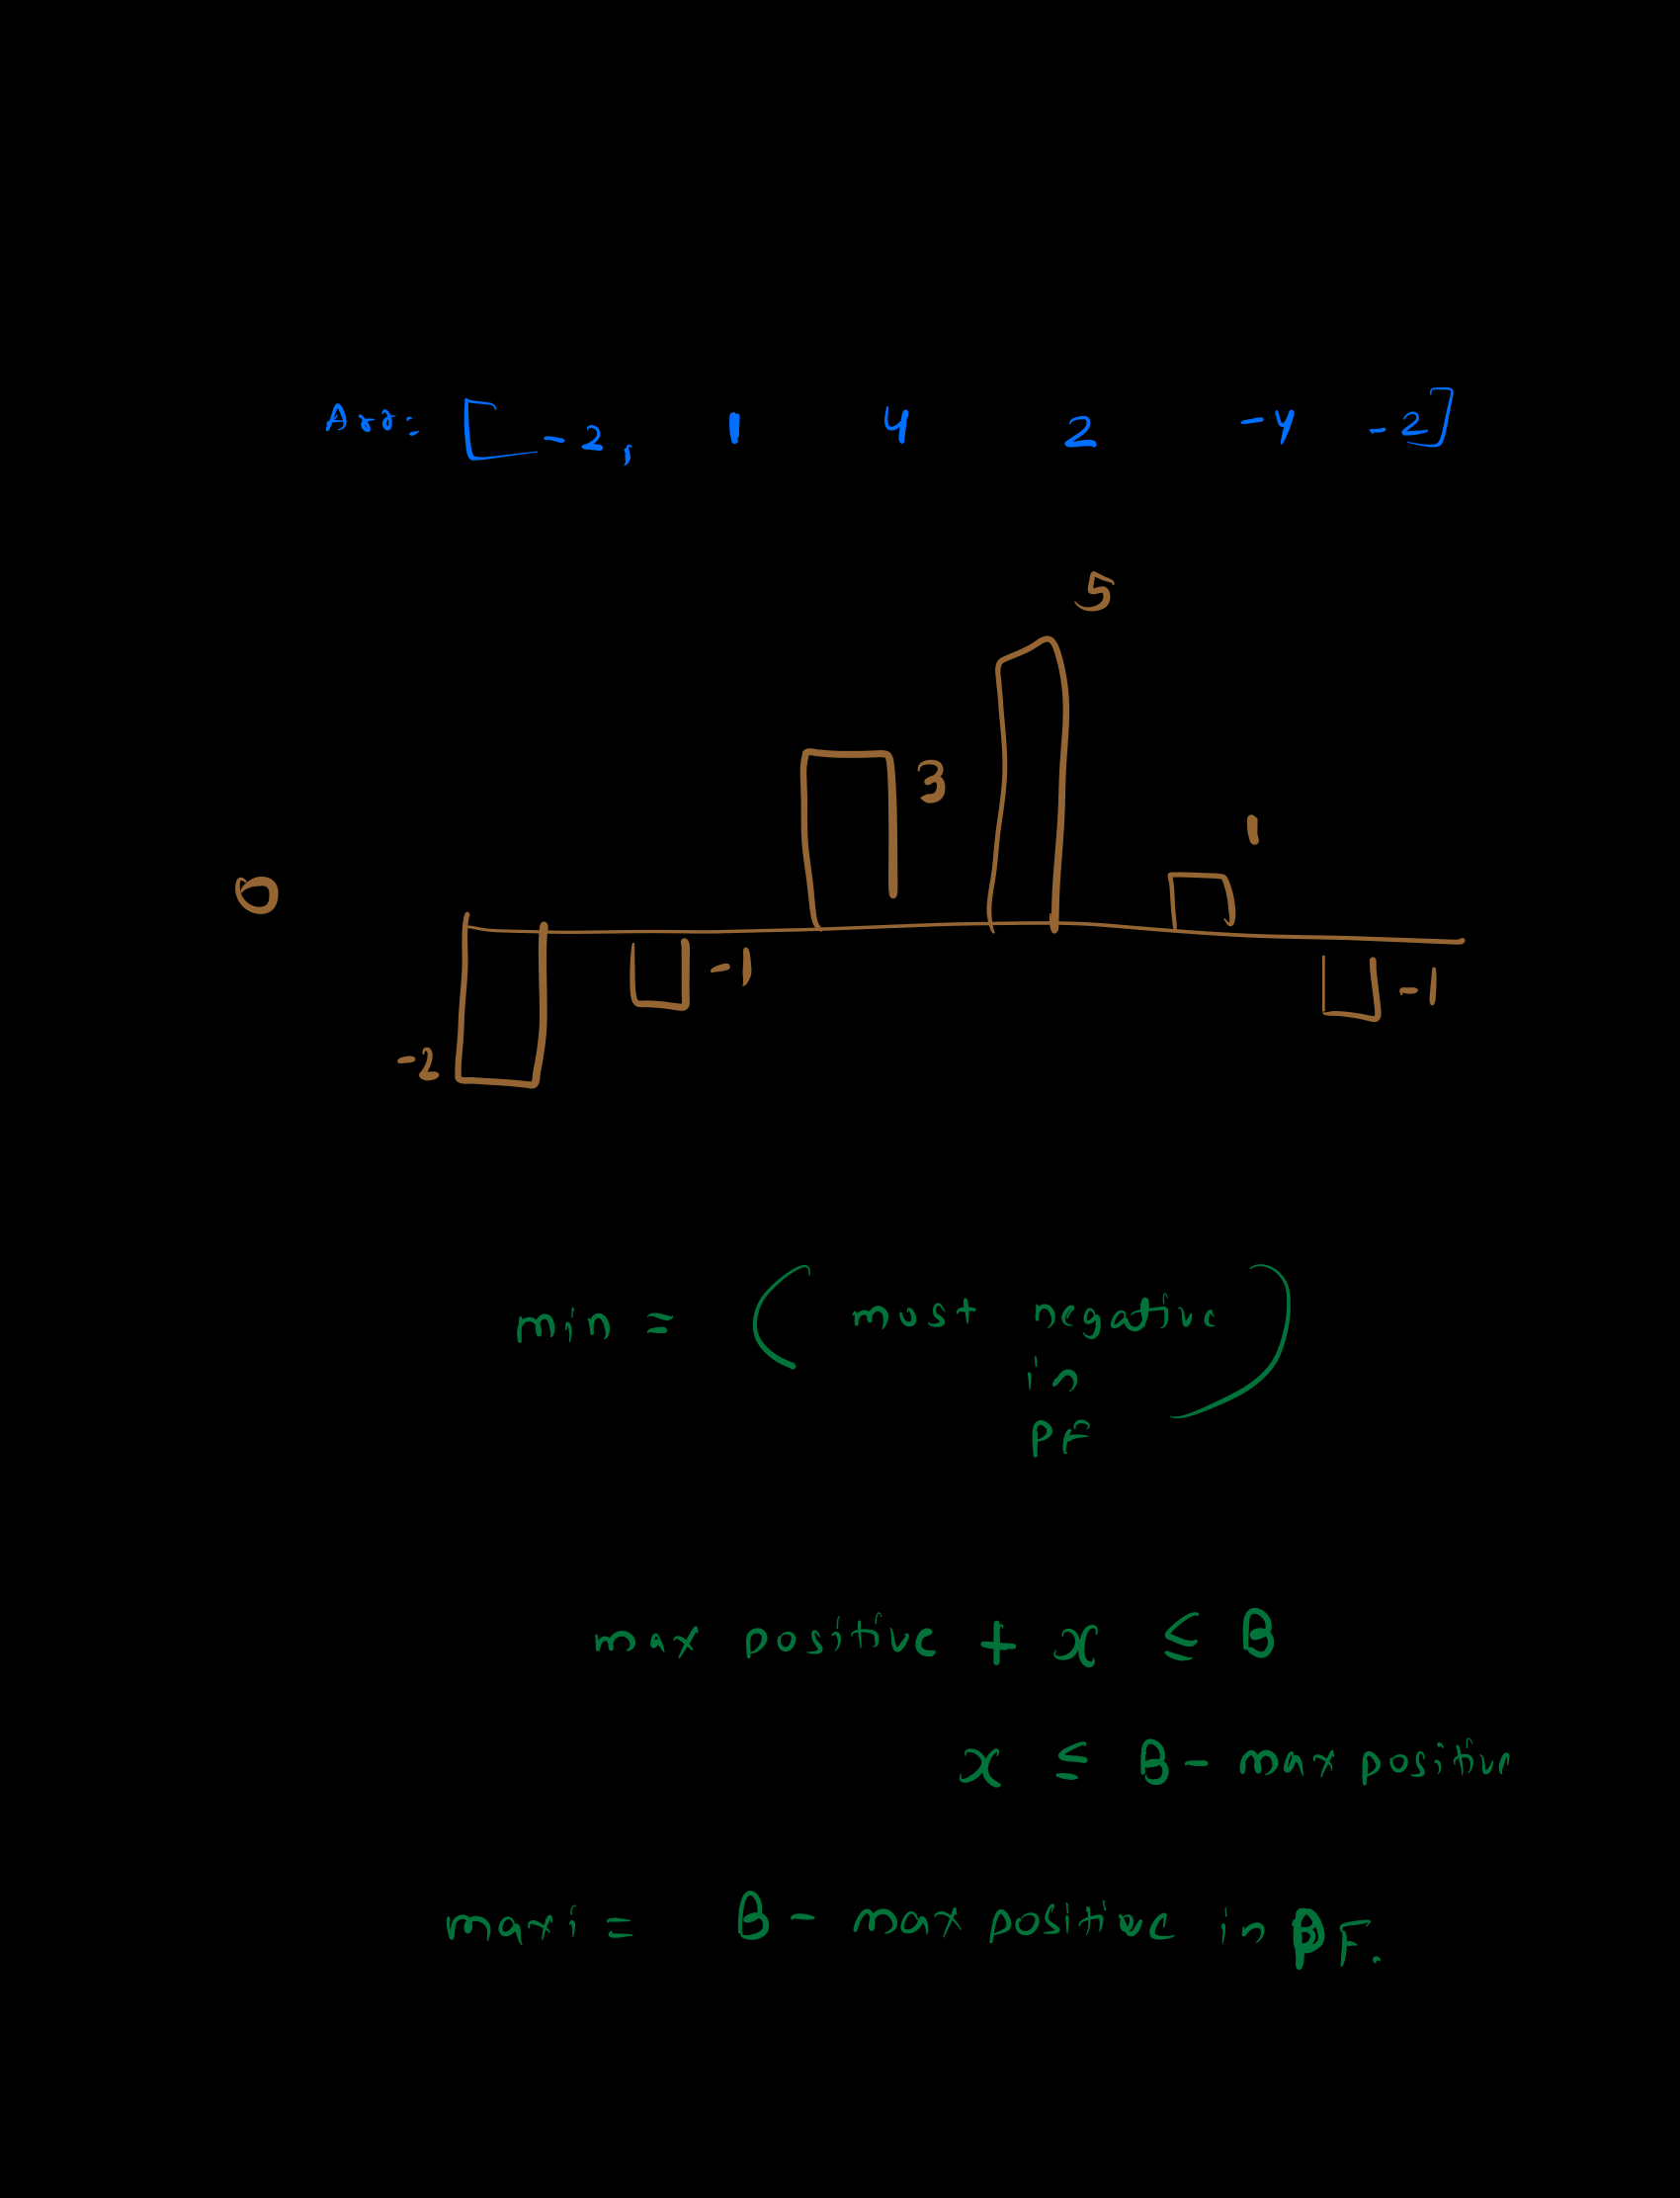 Arr: [ -2, 1 4 2 -4 -2]
5
3
1
0
-1
-1
-2
min = ( most negative
in
PF )
max positive + x ≤ B
x ≤ B - max positive
maxi = B - max positive in PF.